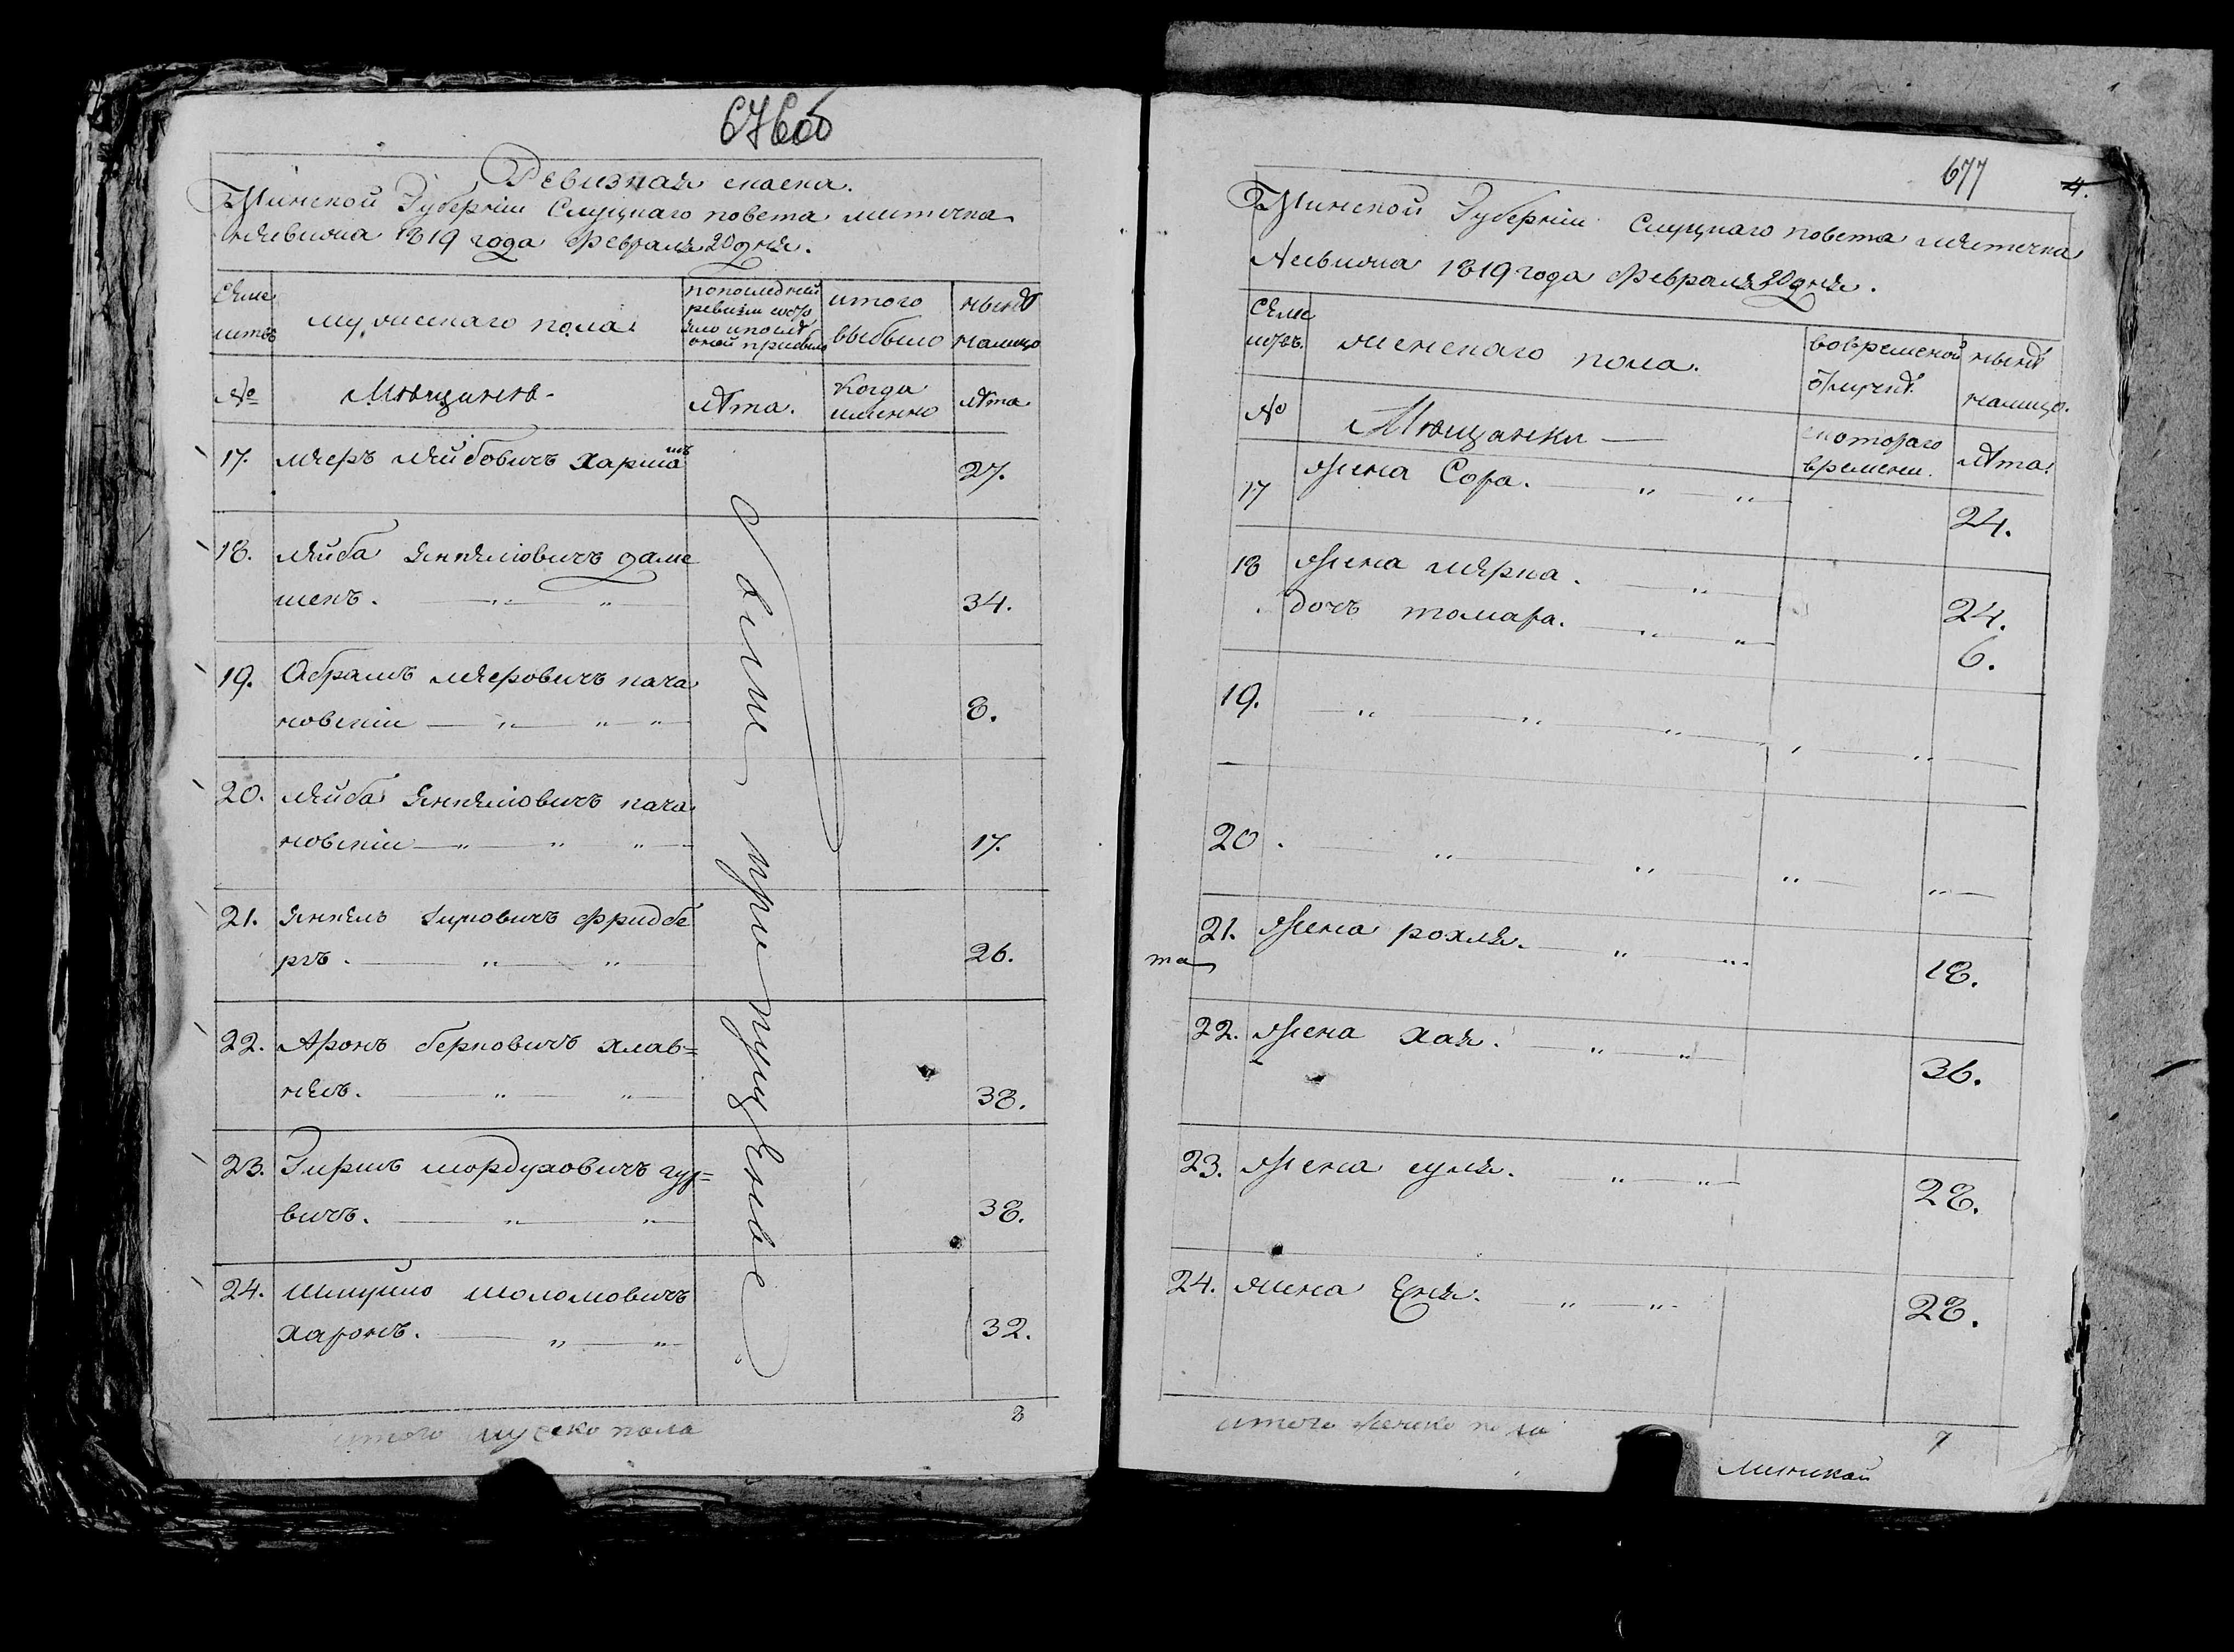 676об
Ревизная скаска.
Минской Губернїи Слуцкаго повета местечка
Ляввиска 1819 года февраля 20 дня.
Семе
мужескаго пола
попоследней
ревизїи состо
яло ипосле
оной прибыло
итого
выбыло
ныне
налицо
№
Мещане
лета.
Когда
именно
лета
17. меер лейбович харма
27.
18. лейба янкелювич даме
шек.
34.
19. Абрам мерович кача
новскїи
8.
20. лейба янкелювич кача
новскїи
17.
21. янкель Ицкович фридбе
рг.
26.
22. Арон беркович хлав=
38.
23. Гирш мордухович гур=
вич.
38.
24. шмуйло шоломович
харон.
32.
Вігни пропущеные
итого мужско пола
8
677
4.
Минской Губернїи Слуцкаго повета местечка
1819 года февраля 20 дня.
Семе
женскаго пола.
вовременой
отлучке
ныне
налицо.
№
Мещанки
скотораго
времени.
лета.
17
жена Сора.
24.
18 жена мерка.
24.
дочь томара.
6.
19.
20.
21. жена рохля.
18.
та
22. жена хая.
36.
23. жена цуля.
28.
24. жена Еня.
28.
итого женско пола
7
Минской